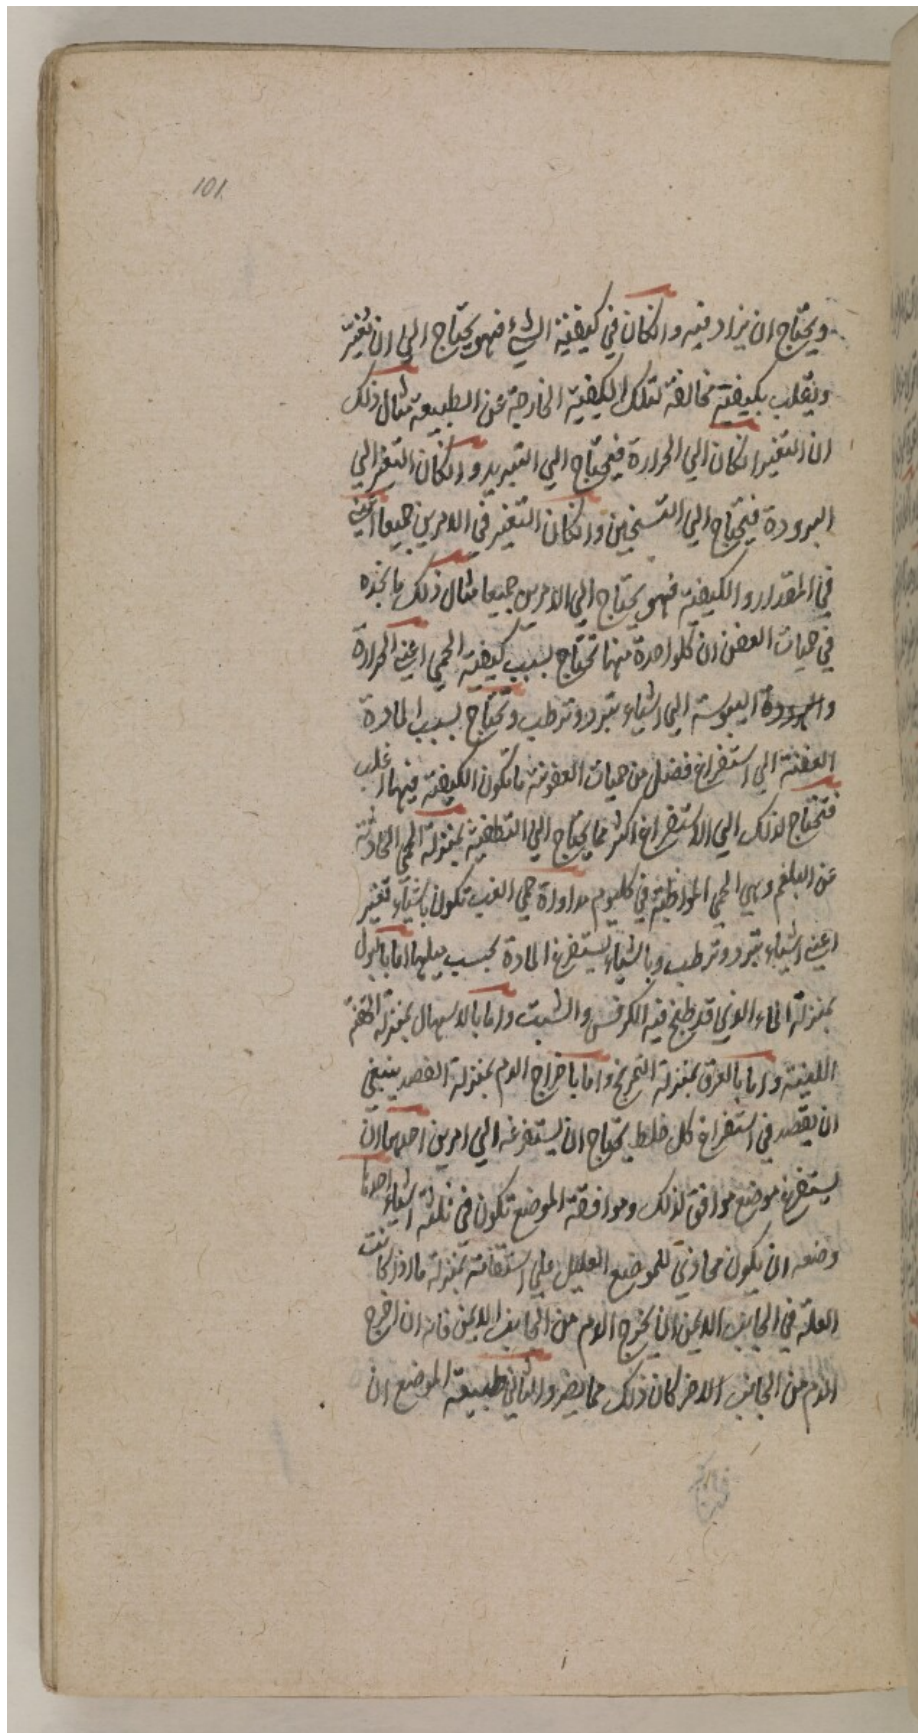 101
ويحتاج ان يزاد فيه وانكان في كيفية الشيء فهو يحتاج الي ان تغير
ويقلب بكيفية مخالفة لتلك الكيفية الخارجة عن الطبيعة مثال ذلك
ان التغير انكان الي الحرارة فيحتاج الي التبريد وانكان التغير الي
البرودة فيحتاج الي التسخين وانكان التغير في الامرين جميعا اعني
في المقدار والكيفية فهو يحتاج الي الامرين جميعا مثال ذلك ما نجده
في حميات العفن ان كلواحدة منها تحتاج بسبب كيفية الحمي اعني الحرارة
واليبوسة الي اشياء تبرد وترطب وتحتاج بسبب المادة
العفنة الي استفراغ فضل من حميات العفونة ما تكون الكيفية فيها اغلب
فتحتاج لذلك الي الاستفراغ اكثر مما يحتاج الي التطفية بمنزلة الحمي الحادثة
عن البلغم وهي الحمي المواظبة في كليوم مداواة حمي الغب تكون باشياء تغير
اعني اشياء تبرد وترطب وباشياء يستفرغ المادة بحسب ميلها اما بالبول
بمنزلة الماء الذي قد طبخ فيه الكرفس والشبت واما بالاسهال بمنزلة الحقنة
اللينة واما بالعرق بمنزلة التمريخ واما باخراج الدم بمنزلة الفصد ينبغي
ان يقصد في استفراغ كل خلط يحتاج ان يستفرغه الي امرين احدهما ان
يستفرغ موضع موافق لذلك وموافقة الموضع تكون في ثلثة اشياء احدها
وضعه ان يكون محاذي للموضع العليل علي استقامة بمنزلة ما اذا كانت
العلة في الجانب الايمن ان يخرج الدم من الجانب الايمن فانه ان اخرج
الدم من الجانب الاخر كان ذلك مما يضر والثاني طبيعة الموضع ان